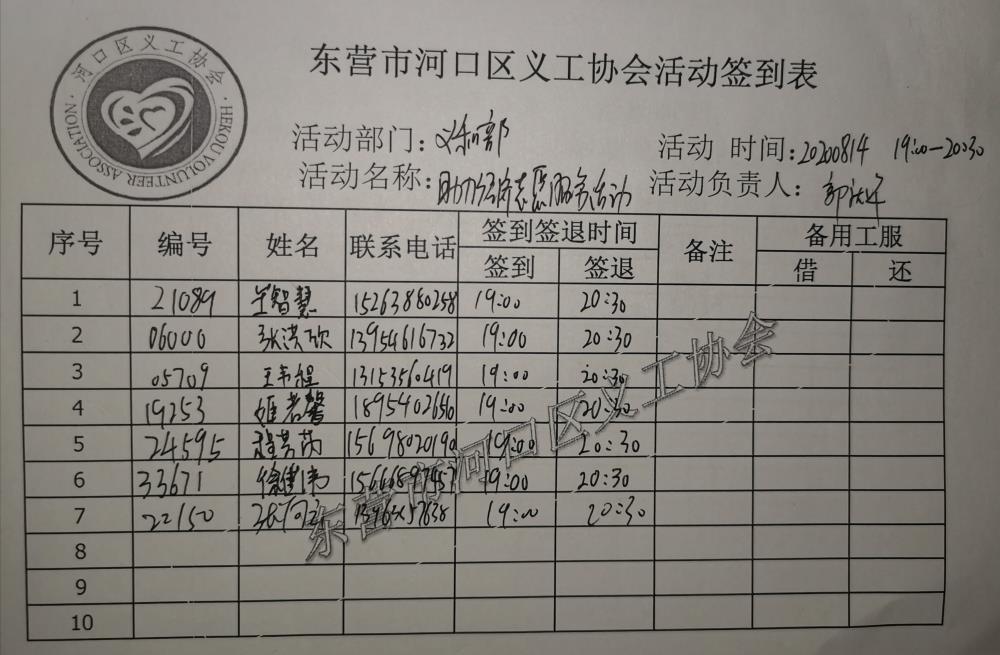 东营市河口区义工协会活动签到表
河口区义工协会
HEKOU VOLUNTEER ASSOCIATION
活动部门: 义和部 活动 时间: 20200814 19:00-20:30
活动名称: 助力经济志愿服务活动 活动负责人:
序号 编号 姓名 联系电话 签到签退时间 备注 备用工服
签到 签退 借 还
1 21089 王智慧 15263880258 19:00 20:30
2 06000 张洪欣 13954616732 19:00 20:30
3 05709 王韦程 13153560419 19:00 20:30
4 19253 姬若馨 18954026560 19:00 20:30
5 24595 程芳芮 15698020190 19:00 20:30
6 33671 徐建伟 15666897457 19:00 20:30
7 22150 19:00 20:30
8
9
10
东营市河口区义工协会